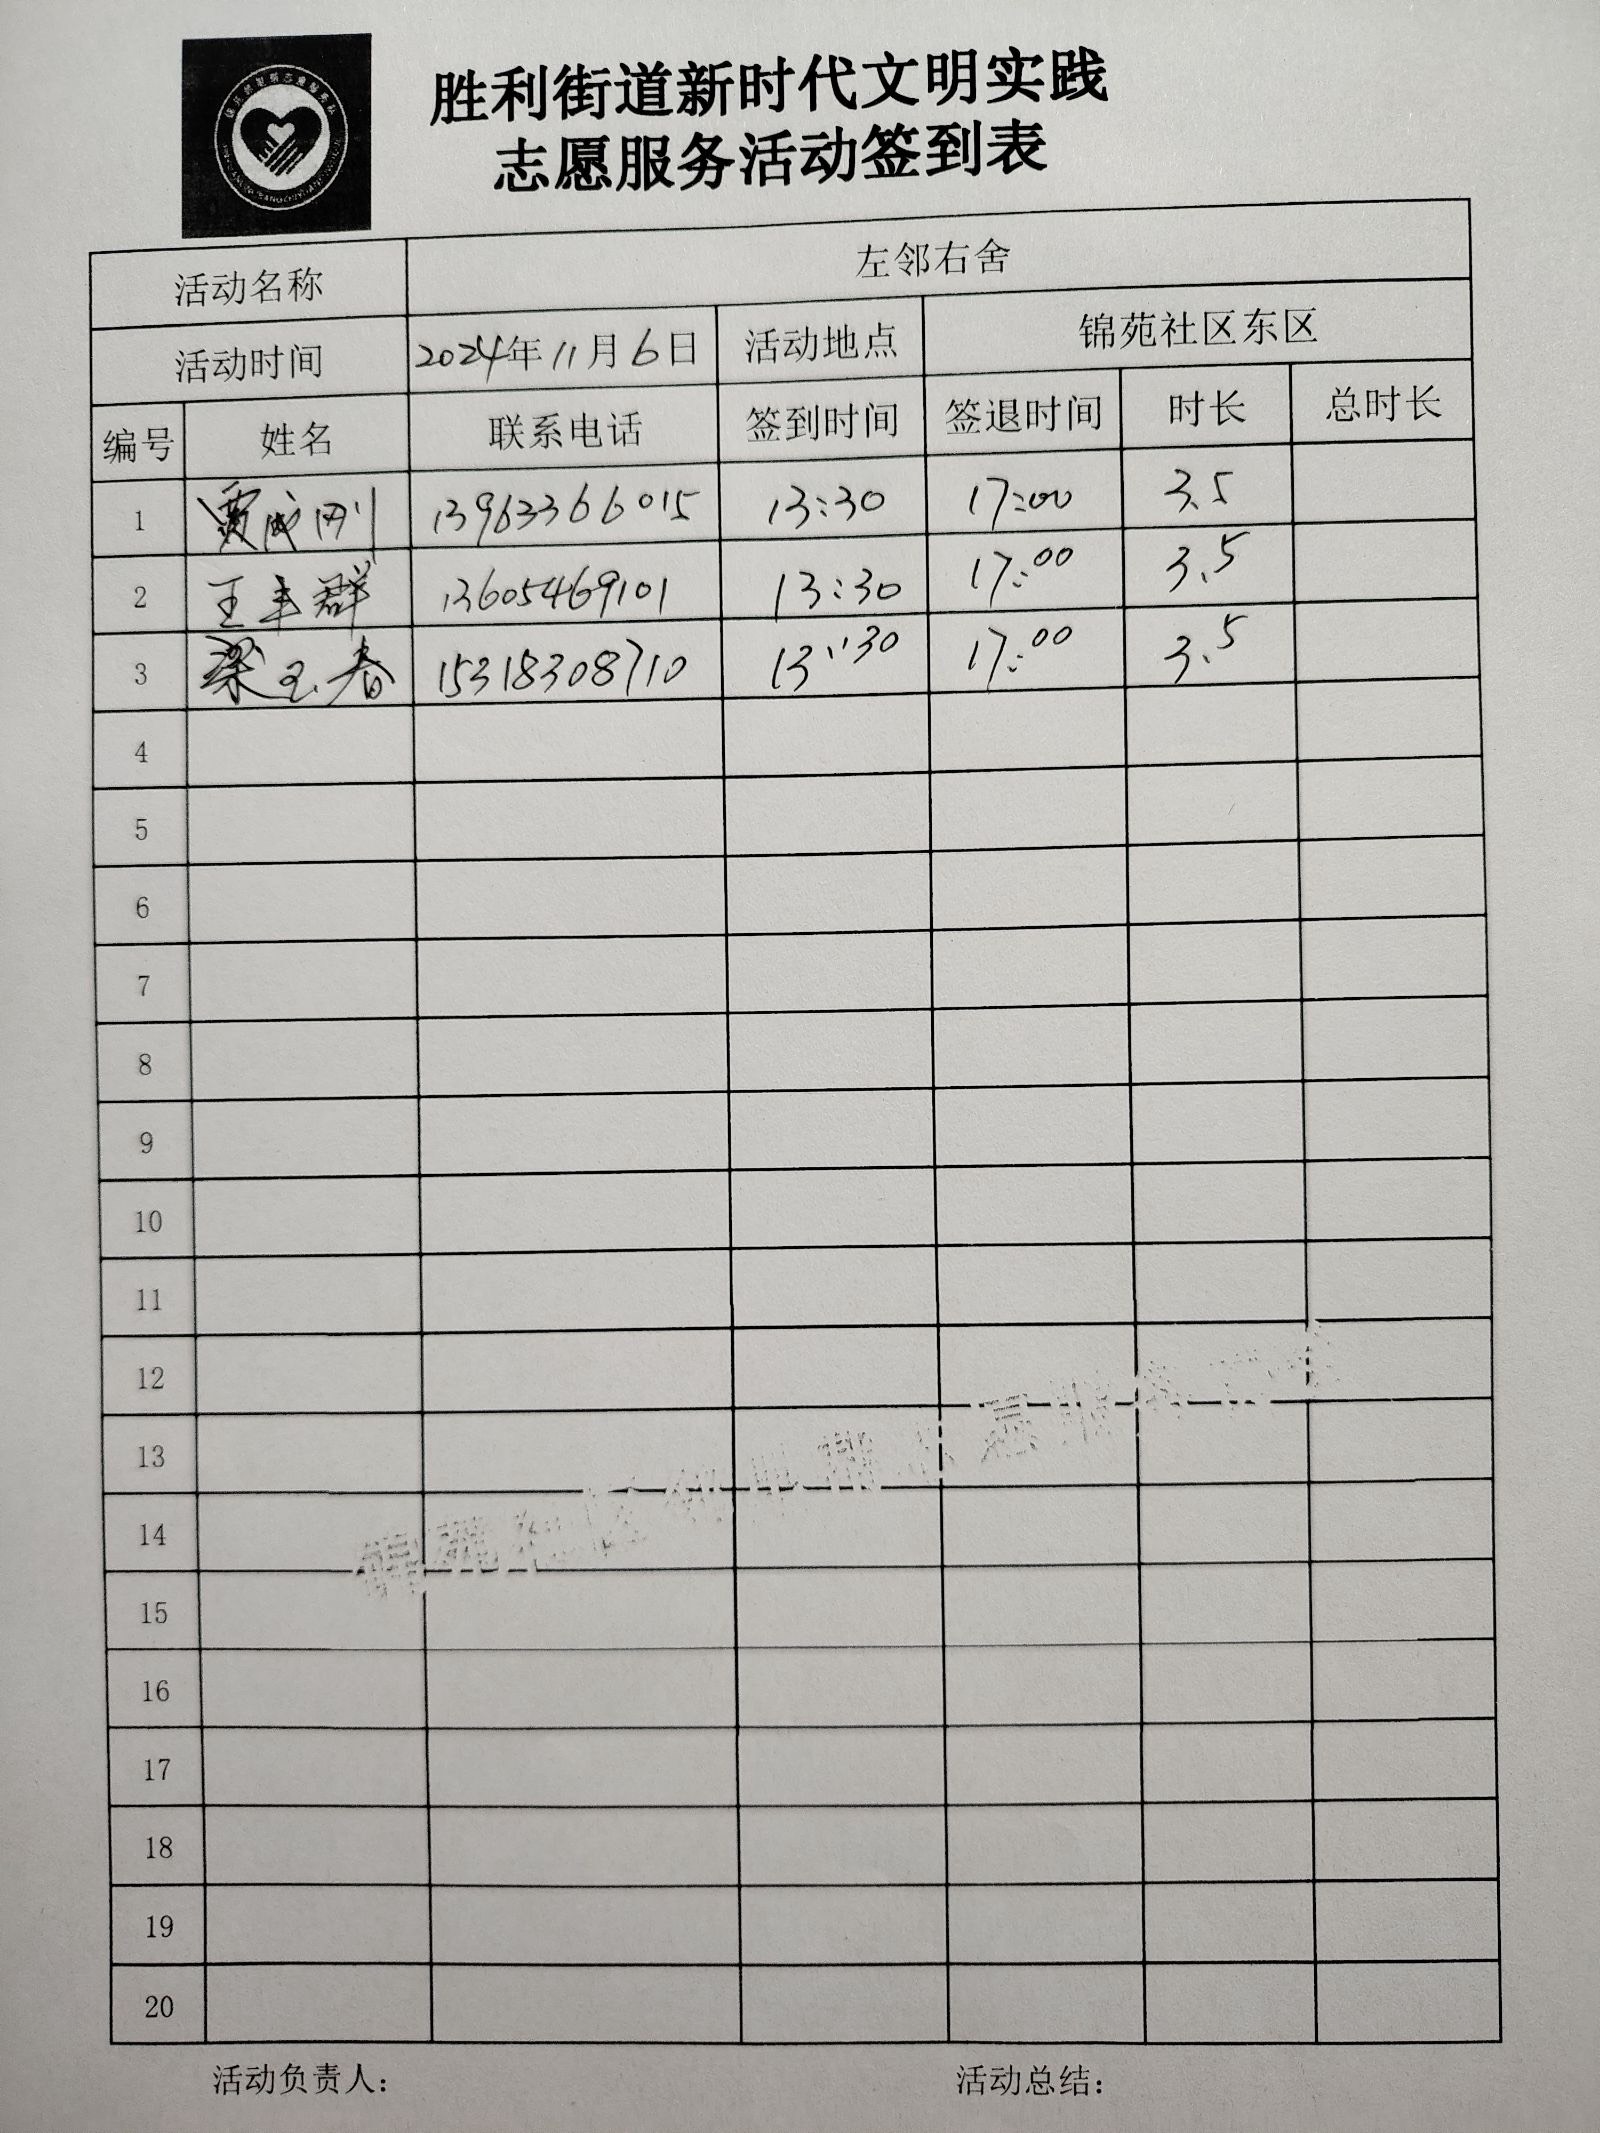 胜利街道新时代文明实践
志愿服务活动签到表
活动名称 左邻右舍
活动时间 2024年11月6日 活动地点 锦苑社区东区
编号 姓名 联系电话 签到时间 签退时间 时长 总时长
1 贾成刚 13963366015 13:30 17:00 3.5
2 王丰群 13605469101 13:30 17:00 3.5
3 梁玉春 15318308710 13:30 17:00 3.5
4
5
6
7
8
9
10
11
12
13
14
15
16
17
18
19
20
活动负责人： 活动总结：